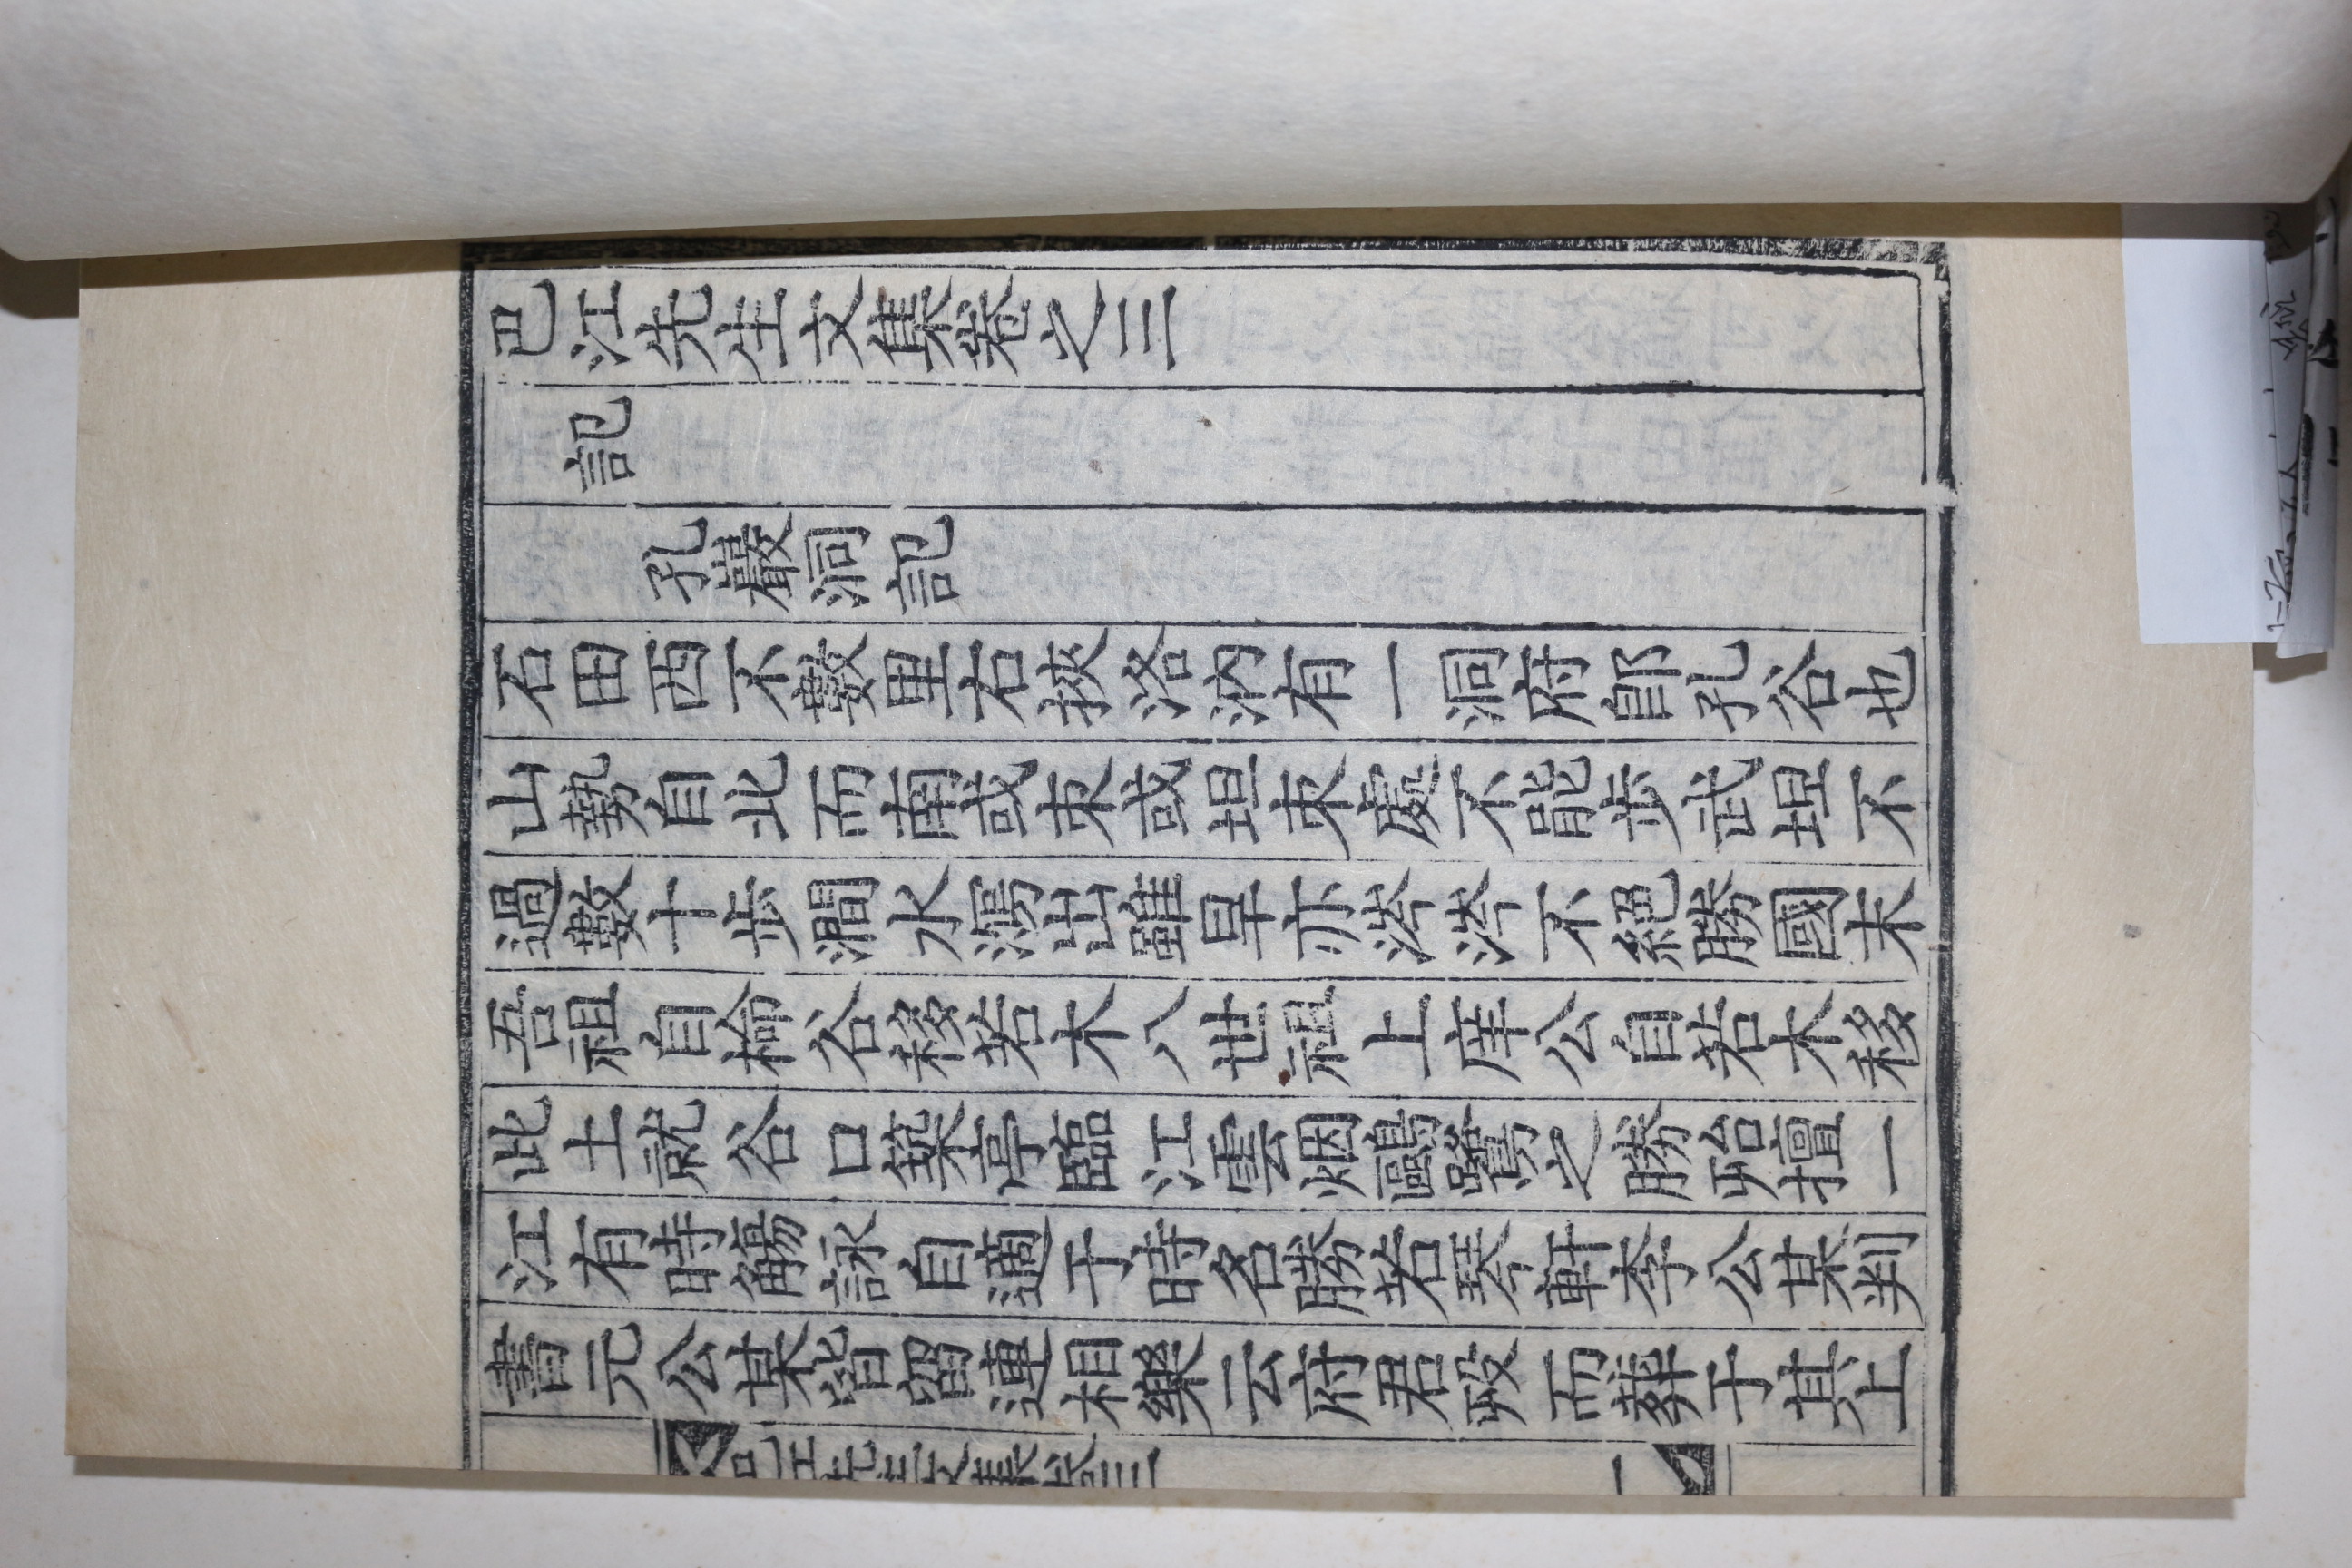 巴江先生文集卷之三
記
孔巖洞記
石田西不數里右挾洛汭有一洞府卽孔谷也
山勢自北而南或東或坦東處不能步武坦不
過數十步澗水瀉出雖旱亦泠泠不絕勝國末
吾祖自楡谷移若木八世祖上庠公自若木移
此土就谷口築亭臨江雲烟鷗鷺之勝殆擅一
江有時觴詠自適于時名勝若琴軒李公某判
書元公某皆留連相樂云府君歿而葬于其上
巴江先生文集卷三 一